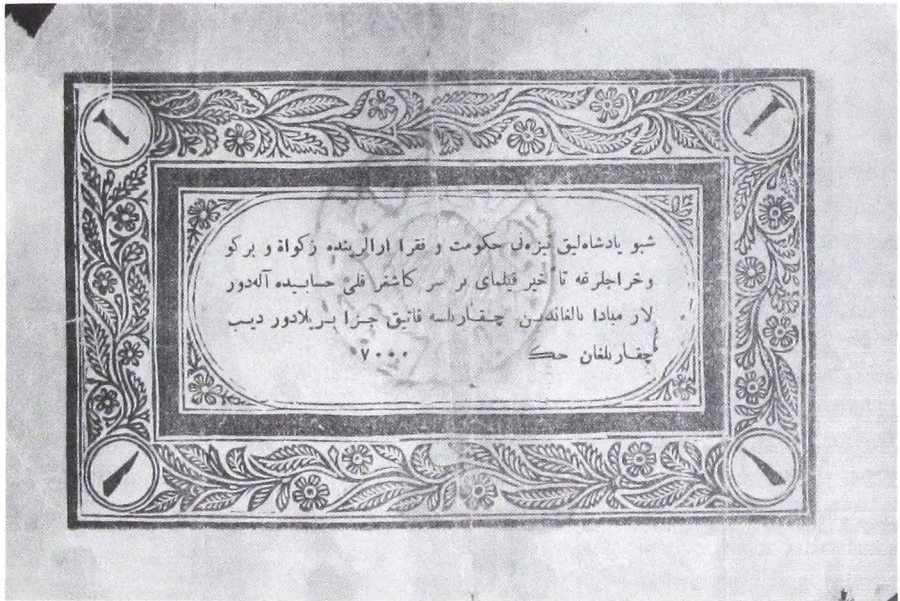 شبو پادشاه‌لیق تیزه‌نی حکومت و فقرا ارالرینده زکواة و برکو
وخراجلرغه تأخیر قیلمای بر سر کاشغر فلی حسابیده آله‌دور
لار مبادا یالغاندین چقاریلسه قاتیق جزا بریلادور دیب
چقاریلغان حک ۷۰۰۰